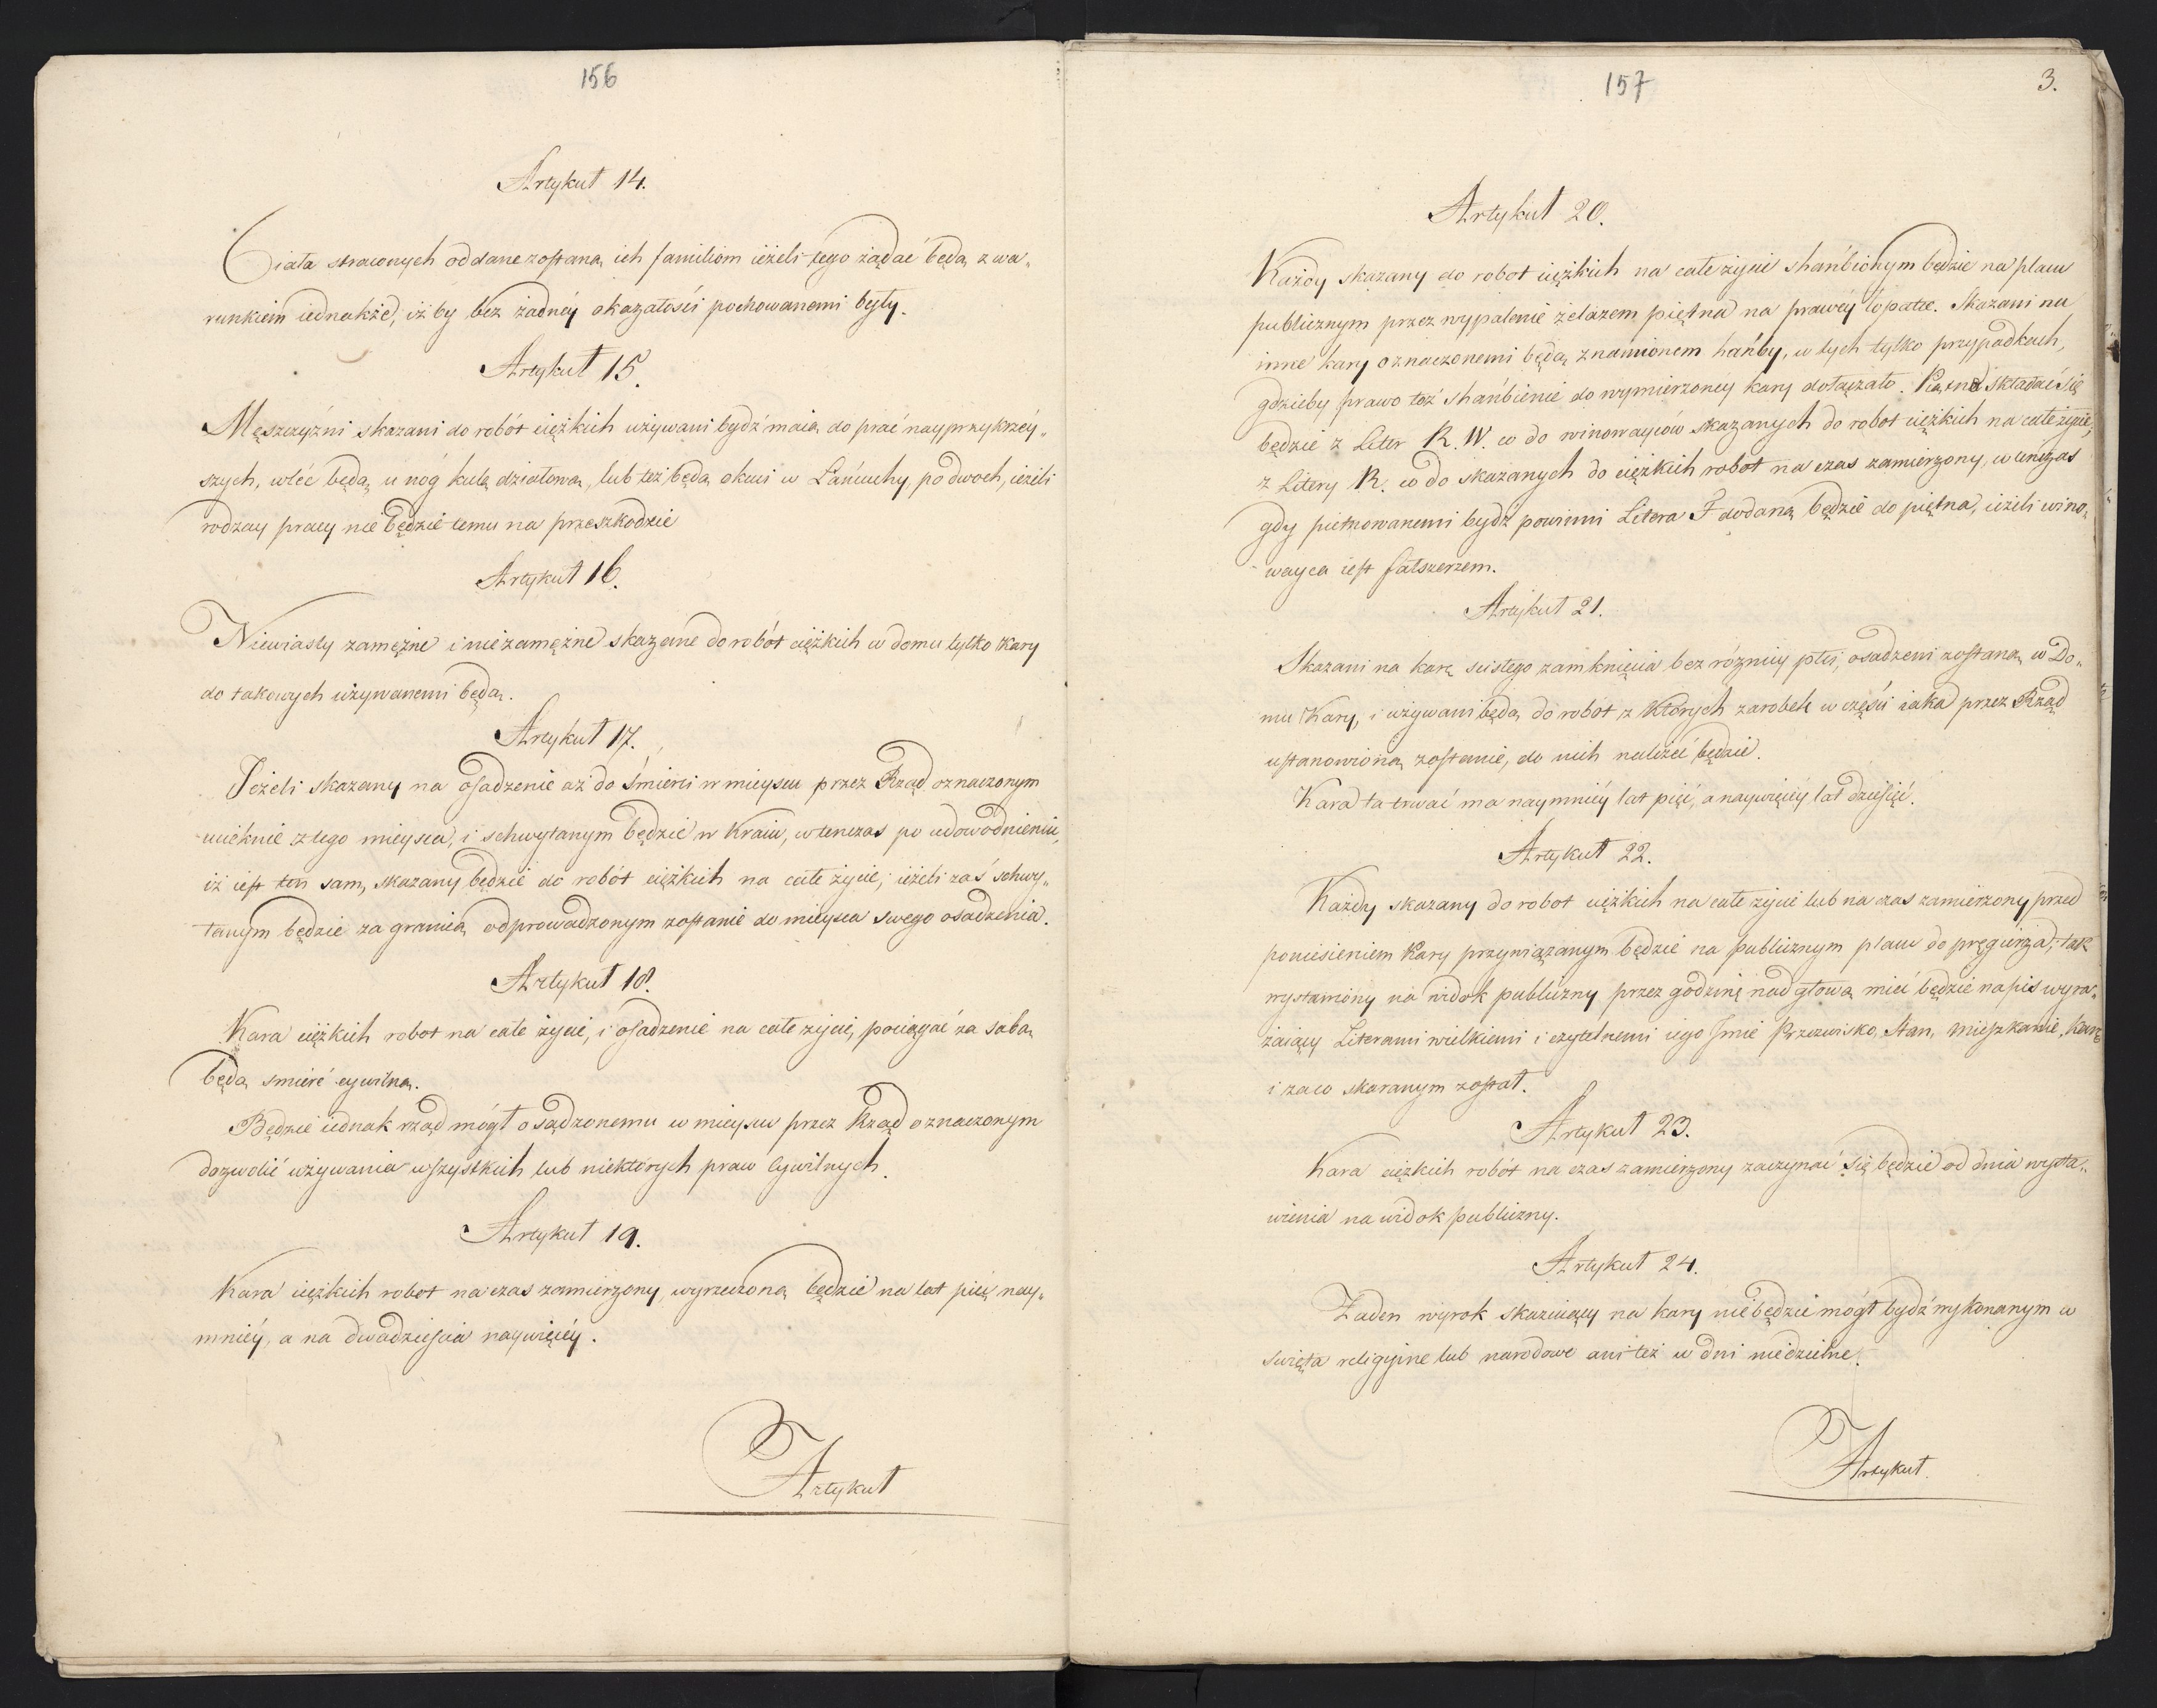 156
Artykuł 14.
Ciała straconych oddane zostaną ich familiom ieżeli tego żądać będą z wa„
runkiem iednakże, iżby bez żadnéy okazałości pochowanemi były.
Artykuł 15.
Męszczyźni skazani do robót ciężkich używani bydź maią do prac nayprzykrzéy„
szych, wléc będą u nóg kulę działową, lub też będą okuci w Łańcuchy, po dwoch, ieżeli
rodzay pracy nie będzie temu na przeszkodzie
Artykuł 16.
Niewiasty zamężne i niezamężne skazane do robót ciężkich w domu tylko Kary
do takowych używanemi będą.
Artykuł 17.
Jeżeli skazany na osadzenie aż do śmierci w mieyscu przez Rząd oznaczonym
ucieknie z tego mieysca, i schwytanym będzie w Kraiu, wtenczas po udowodnieniu,
iż iest ten sam, skazany będzie do robót ciężkich na całe życie; ieżeli zaś schwy„
tanym będzie za granicą odprowadzonym zostanie do mieysca swego osadzenia.
Artykuł 18.
Kara ciężkich robot na całe życie, i osadzenie na całe życie, pociągać za sobą
będą smierć cywilną.
Będzie iednak rząd mógł osądzonemu w mieyscu przez Rząd oznaczonym
dozwolić używania wszystkich lub niektórych praw Cywilnych.
Artykuł 19.
Kara ciężkich robot na czas zamierzony, wyrzeczoną będzie na lat pięć nay„
mniéy, a na dwadzieścia naywięcéy.
Artykuł
157
3.
Artykuł 20.
Każdy skazany do robot ciężkich na całe życie shańbionym będzie na placu
publicznym przez wypalenie żelazem piętna na prawéy łopatce. Skazani na
inne kary oznaczonemi będą znamionem hańby, w tych tylko przypadkach,
gdzieby prawo też shańbienie do wymierzonéy kary dołączało. Piętno składać się
będzie z Liter R. W. co do winowayców skazanych do robot ciężkich na całe życie,
z Litery R. co do skazanych do ciężkich robot na czas zamierzony, wtenczas
gdy piętnowanemi bydź powinni Litera F dodaną będzie do piętna, ieżeli wino„
wayca iest fałszerzem.
Artykuł 21.
Skazani na karę scisłego zamknięcia bez różnicy płci, osadzeni zostaną w Do„
mu Kary, i używani będą do robot z Których zarobek w części iaka przez Rząd
ustanowioną zostanie, do nich należeć będzie.
Kara ta trwać ma naymniéy lat pięć, a naywięcéy lat dziesięć.
Artykuł 22.
Każdy skazany do robot ciężkich na całe życie lub na czas zamierzony przed
poniesieniem Kary przywiązanym będzie na publicznym placu do pręgierza, tak
wystawiony na widok publiczny przez godzinę nad głową mieć będzie napis wyra„
żaiący Literami wielkiemi i czytelnemi iego Jmie Przezwisko, Stan, mieszkanie, Karę
i za co skaranym został.
Artykuł 23.
Kara ciężkich robót na czas zamierzony zaczynać się będzie od dnia wysta„
wienia na widok publiczny.
Artykuł 24.
Żaden wyrok skazuiący na kary nie będzie mógł bydź wykonanym w
swięta religiyne lub narodowe ani też w dni niedzielne.
Artykuł.